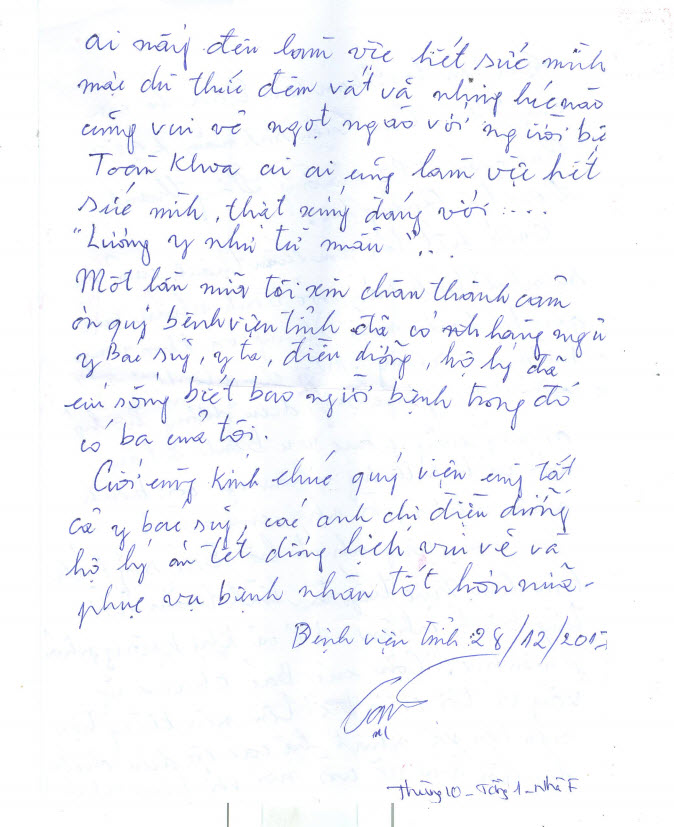 ai nấy đều làm việc hết sức mình
mặc dù thức đêm vất vả nhưng lúc nào
cũng vui vẻ ngọt ngào với người bệ
Toàn khoa ai ai cũng làm việc hết
sức mình, thật xứng đáng với....
"Lương y như từ mẫu"...
Một lần nữa tôi xin chân thành cảm
ơn quý bệnh viện tỉnh đã có hàng ngũ
y Bác sỹ, y tá, điều dưỡng, hộ lý đã
cứu sống biết bao người bệnh trong đó
có ba của tôi.
Cuối cùng kính chúc quý viện cùng tất
cả y bác sỹ, các anh chị điều dưỡng
hộ lý ăn tết dương lịch vui vẻ và
phục vụ bệnh nhân tốt hơn nữa -
Bệnh viện tỉnh 28/12/2017
Tầng 1 - Nhà F